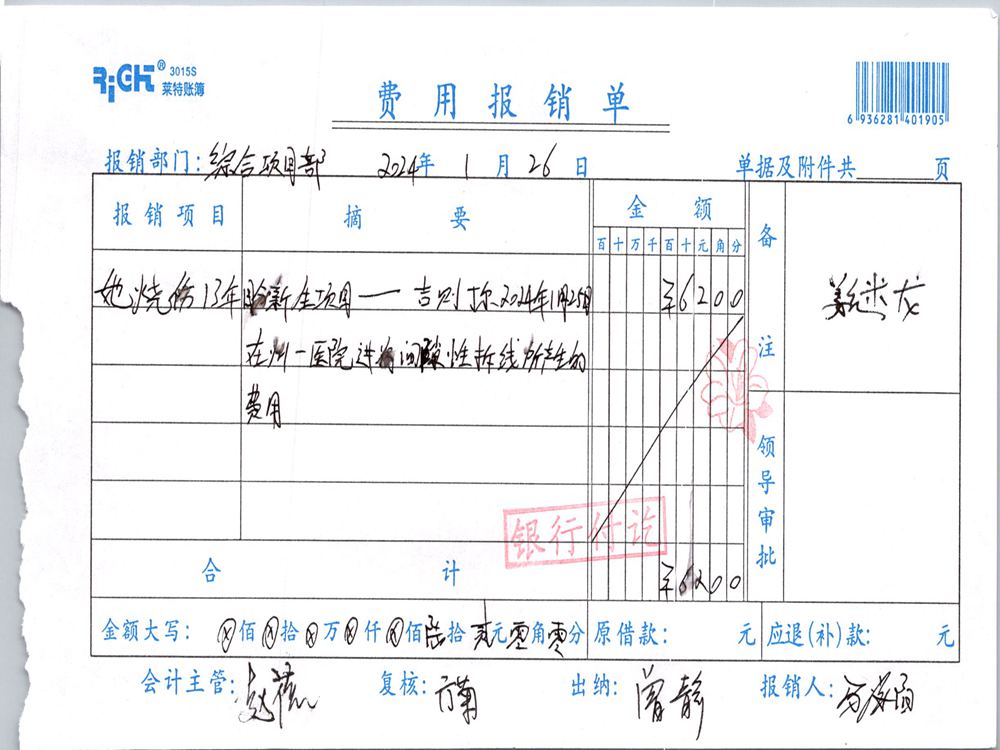 RiCH® 3015S
莱特账簿
费用报销单
6 936281 401905
报销部门: 综合项目部 2024年 1月 26日 单据及附件共 页
报销项目 摘要 金额 备注
百 十 万 千 百 十 元 角 分
烧伤13年 新生项目——吉则拉尔2024年1月25日 ¥6200
在州一医院进行间隙性拆线所产生的
费用
领导审批
银行付讫
合计 ¥6200
金额大写: ⓧ佰ⓧ拾ⓧ万ⓧ仟ⓧ佰陆拾贰元零角零分 原借款: 元 应退(补)款: 元
会计主管: 复核: 出纳: 曾静 报销人: